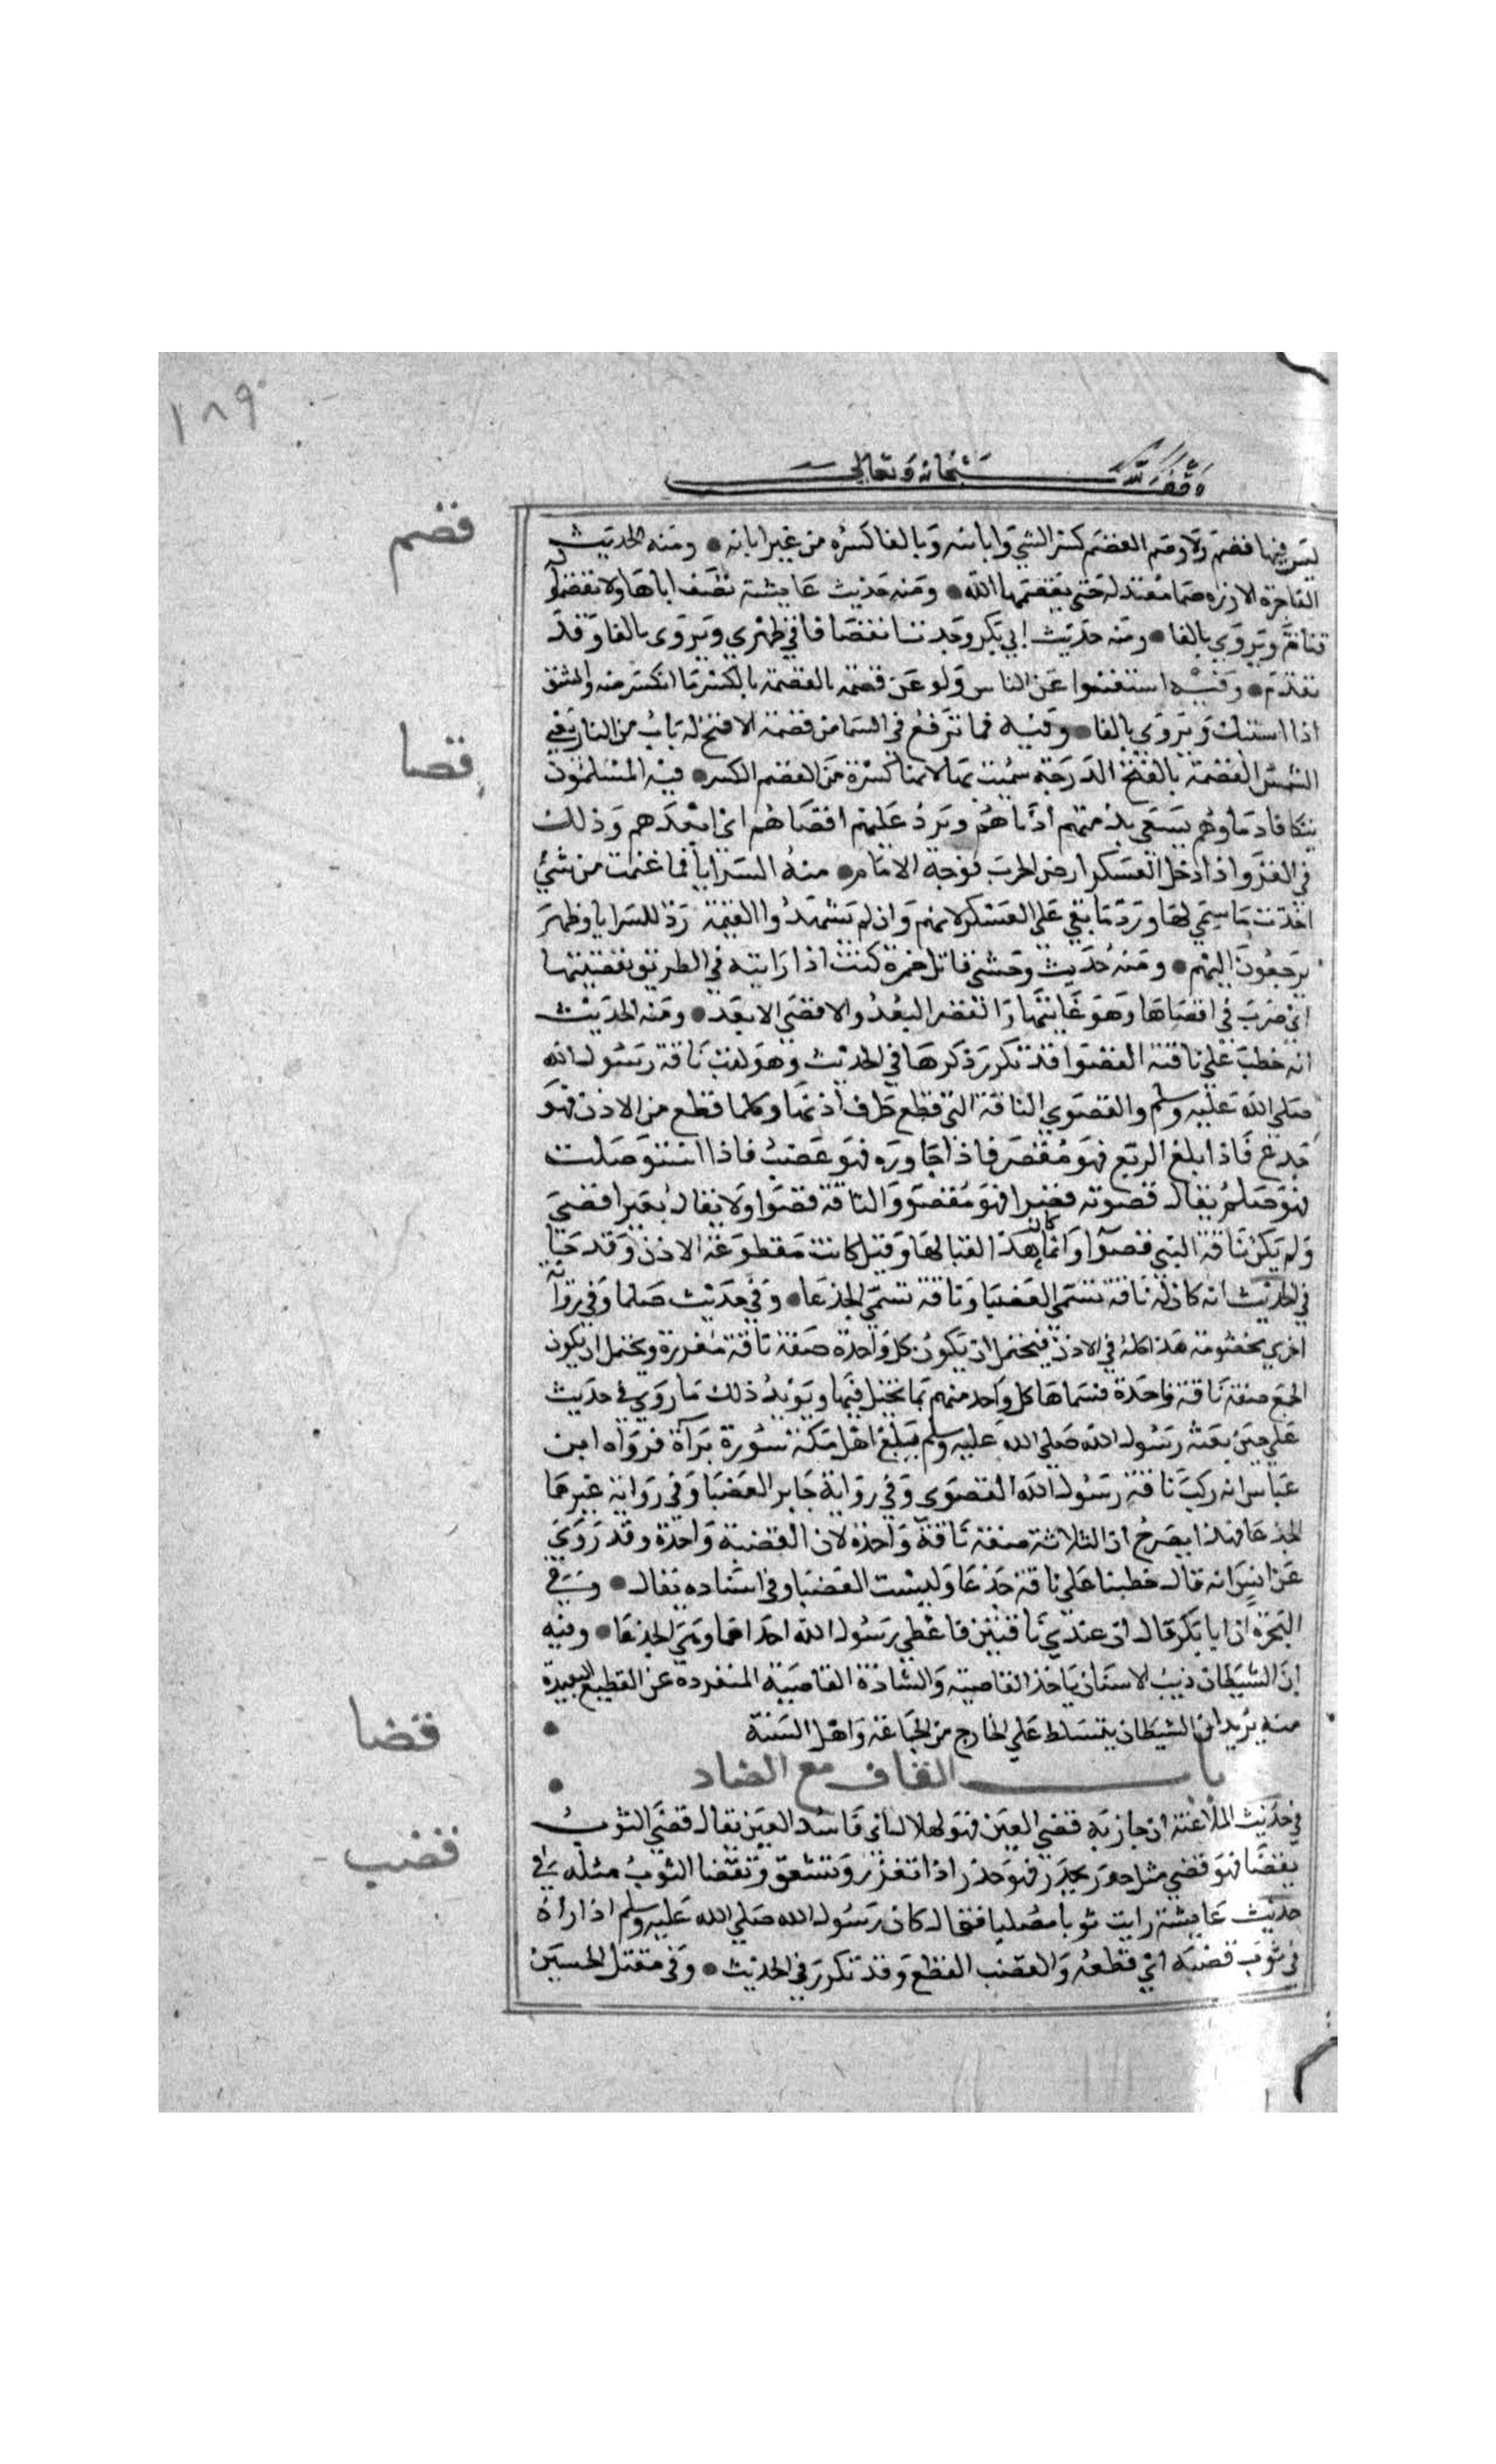 ١٨٩
وقف لله سبحانه وتعالى
قصم
ليس فيها قصم ولا وصم القصم كسر الشي وابانته وبالفا كسره من غير ابانه ● ومنه الحديث
الفاجرة كالارزه صما معتدلة حتى يقصمها الله ● ومنه حديث عايشة تصف اباها ولا قصموا له
قناة ويروي بالفا ● ومنه حديث ابي بكر وجدت انقصاما في ظهري ويروى بالفا وقد
تقدم ● وفيه استغنوا عن الناس ولو عن قصمة القصمة بالكسر ما انكسر منه وانشق
اذا استيك ويروى بالفا ● وفيه فما ترفع في السما من قصمة الا فتح له باب من النار يعني
قصا
الشمس القصمة بالفتح الدرجة سميت بها لانها كسرة من القصم الكسر ● فيه المسلمون
تتكافا دماوهم يسعى بذمتهم ادناهم ويرد عليهم اقصاهم اي ابعدهم وذلك
في الغزو اذا دخل العسكر ارض الحرب فوجه الامام ● منه السرايا فما غنمت من شيء
اخذت ما سمي لها ورد ما بقي على العسكر لانهم وان لم يشهدوا الغنيمة ردء للسرايا وظهر
يرجعون اليهم ● ومنه حديث وحشي قاتل حمزة كنت اذا رايته في الطريق تقصيتها
اي ضرت في اقصاها وهو غايتها والقصو البعد والاقصى الابعد ● ومنه الحديث
انه خطب علي ناقته القصوا قد تكرر ذكرها في الحديث وهو لقب ناقة رسول الله
صلي الله عليه وسلم والقصوي الناقة التي قطع طرف اذنها وكلما قطع من الاذن فهو
جدع فاذا بلغ الربع فهو مقصو فاذا جاوره فهو عضب فاذا استوصلت
فهو صلم يقال قصوته قصوا فهو مقصو والناقة قصوا ولا يقال بعير اقصي
ولم يكن ناقة النبي قصوا وانما كان هذا لقبا لها وقيل كانت مقطوعة الاذن وقد جا
في الحديث انه كان له ناقة تسمى العضبا وناقة تسمي الجذعا ● وفي حديث صلما وفي رواية
اخري مخضرمة هذا كله في الاذن فيحتمل ان يكون كل واحدة صفة ناقة مفردة ويحتمل ان يكون
الجميع صفة ناقة واحدة فسماها كل واحد منهم بما تخيل فيها ويويد ذلك ما روي في حديث
علي حين بعثه رسول الله صلي الله عليه وسلم يبلغ اهل مكة سورة براة فرواه ابن
عباس انه ركب ناقة رسول الله القصوي وفي رواية جابر العضبا وفي رواية غيرهما
الجدعا فهذا يصرح ان الثلاثة صفة ناقة واحدة لان القضية واحدة وقد روي
عن انس انه قال خطبنا علي ناقة جدعا وليست العضبا وفي اسناده مقال ● وفي
الهجرة ان ابا بكر قال ان عندي ناقتين فاعطي رسول الله احداهما وهي الجذعا ● وفيه
ان الشيطان ذيب الانسان ياخذ القاصية والشاذة القاصية المنفردة عن القطيع البعيدة
منه يريد ان الشيطان يتسلط علي الخارج من الجماعة واهل السنة ●
باب القاف مع الضاد ●
قضا
في حديث الملاعنة ان جات به قضي العين فهو لهلال اي فاسد العين يقال قضي الثوب
يقضا فهو قضي مثل حذر يحذر فهو حذر اذا تفزر وتشقق وتقضا الثوب مثله في
قضب
حديث عايشة رايت ثوبا مصلبا فقال كان رسول الله صلي الله عليه وسلم اذا راه
في ثوب قضبه اي قطعه والقضب القطع وقد تكرر في الحديث ● وفي مقتل الحسين